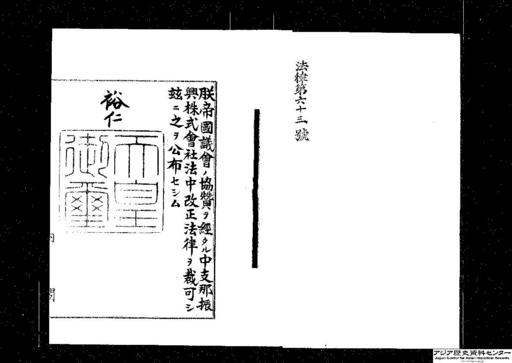 法律第六十三號
朕帝國議會ノ協贊ヲ經タル中支那振
興株式會社法中改正法律ヲ裁可シ
玆ニ之ヲ公布セシム
裕仁
天皇
御璽
内閣
アジア歴史資料センター
Japan Center for Asian Historical Records